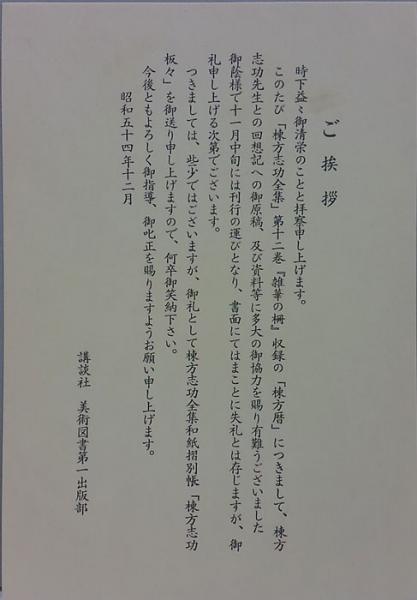 ご挨拶
時下益々御清栄のことと拝察申し上げます。
このたび「棟方志功全集」第十二巻『雑華の柵』収録の「棟方暦」につきまして、棟方
志功先生との回想記への御原稿、及び資料等に多大の御協力を賜り有難うございました
御蔭様で十一月中旬には刊行の運びとなり、書面にてはまことに失礼とは存じますが、御
礼申し上げる次第でございます。
つきましては、些少ではございますが、御礼として棟方志功全集和紙摺別帳「棟方志功
板々」を御送り申し上げますので、何卒御笑納下さい。
今後ともよろしく御指導、御叱正を賜りますようお願い申し上げます。
昭和五十四年十二月
講談社　美術図書第一出版部